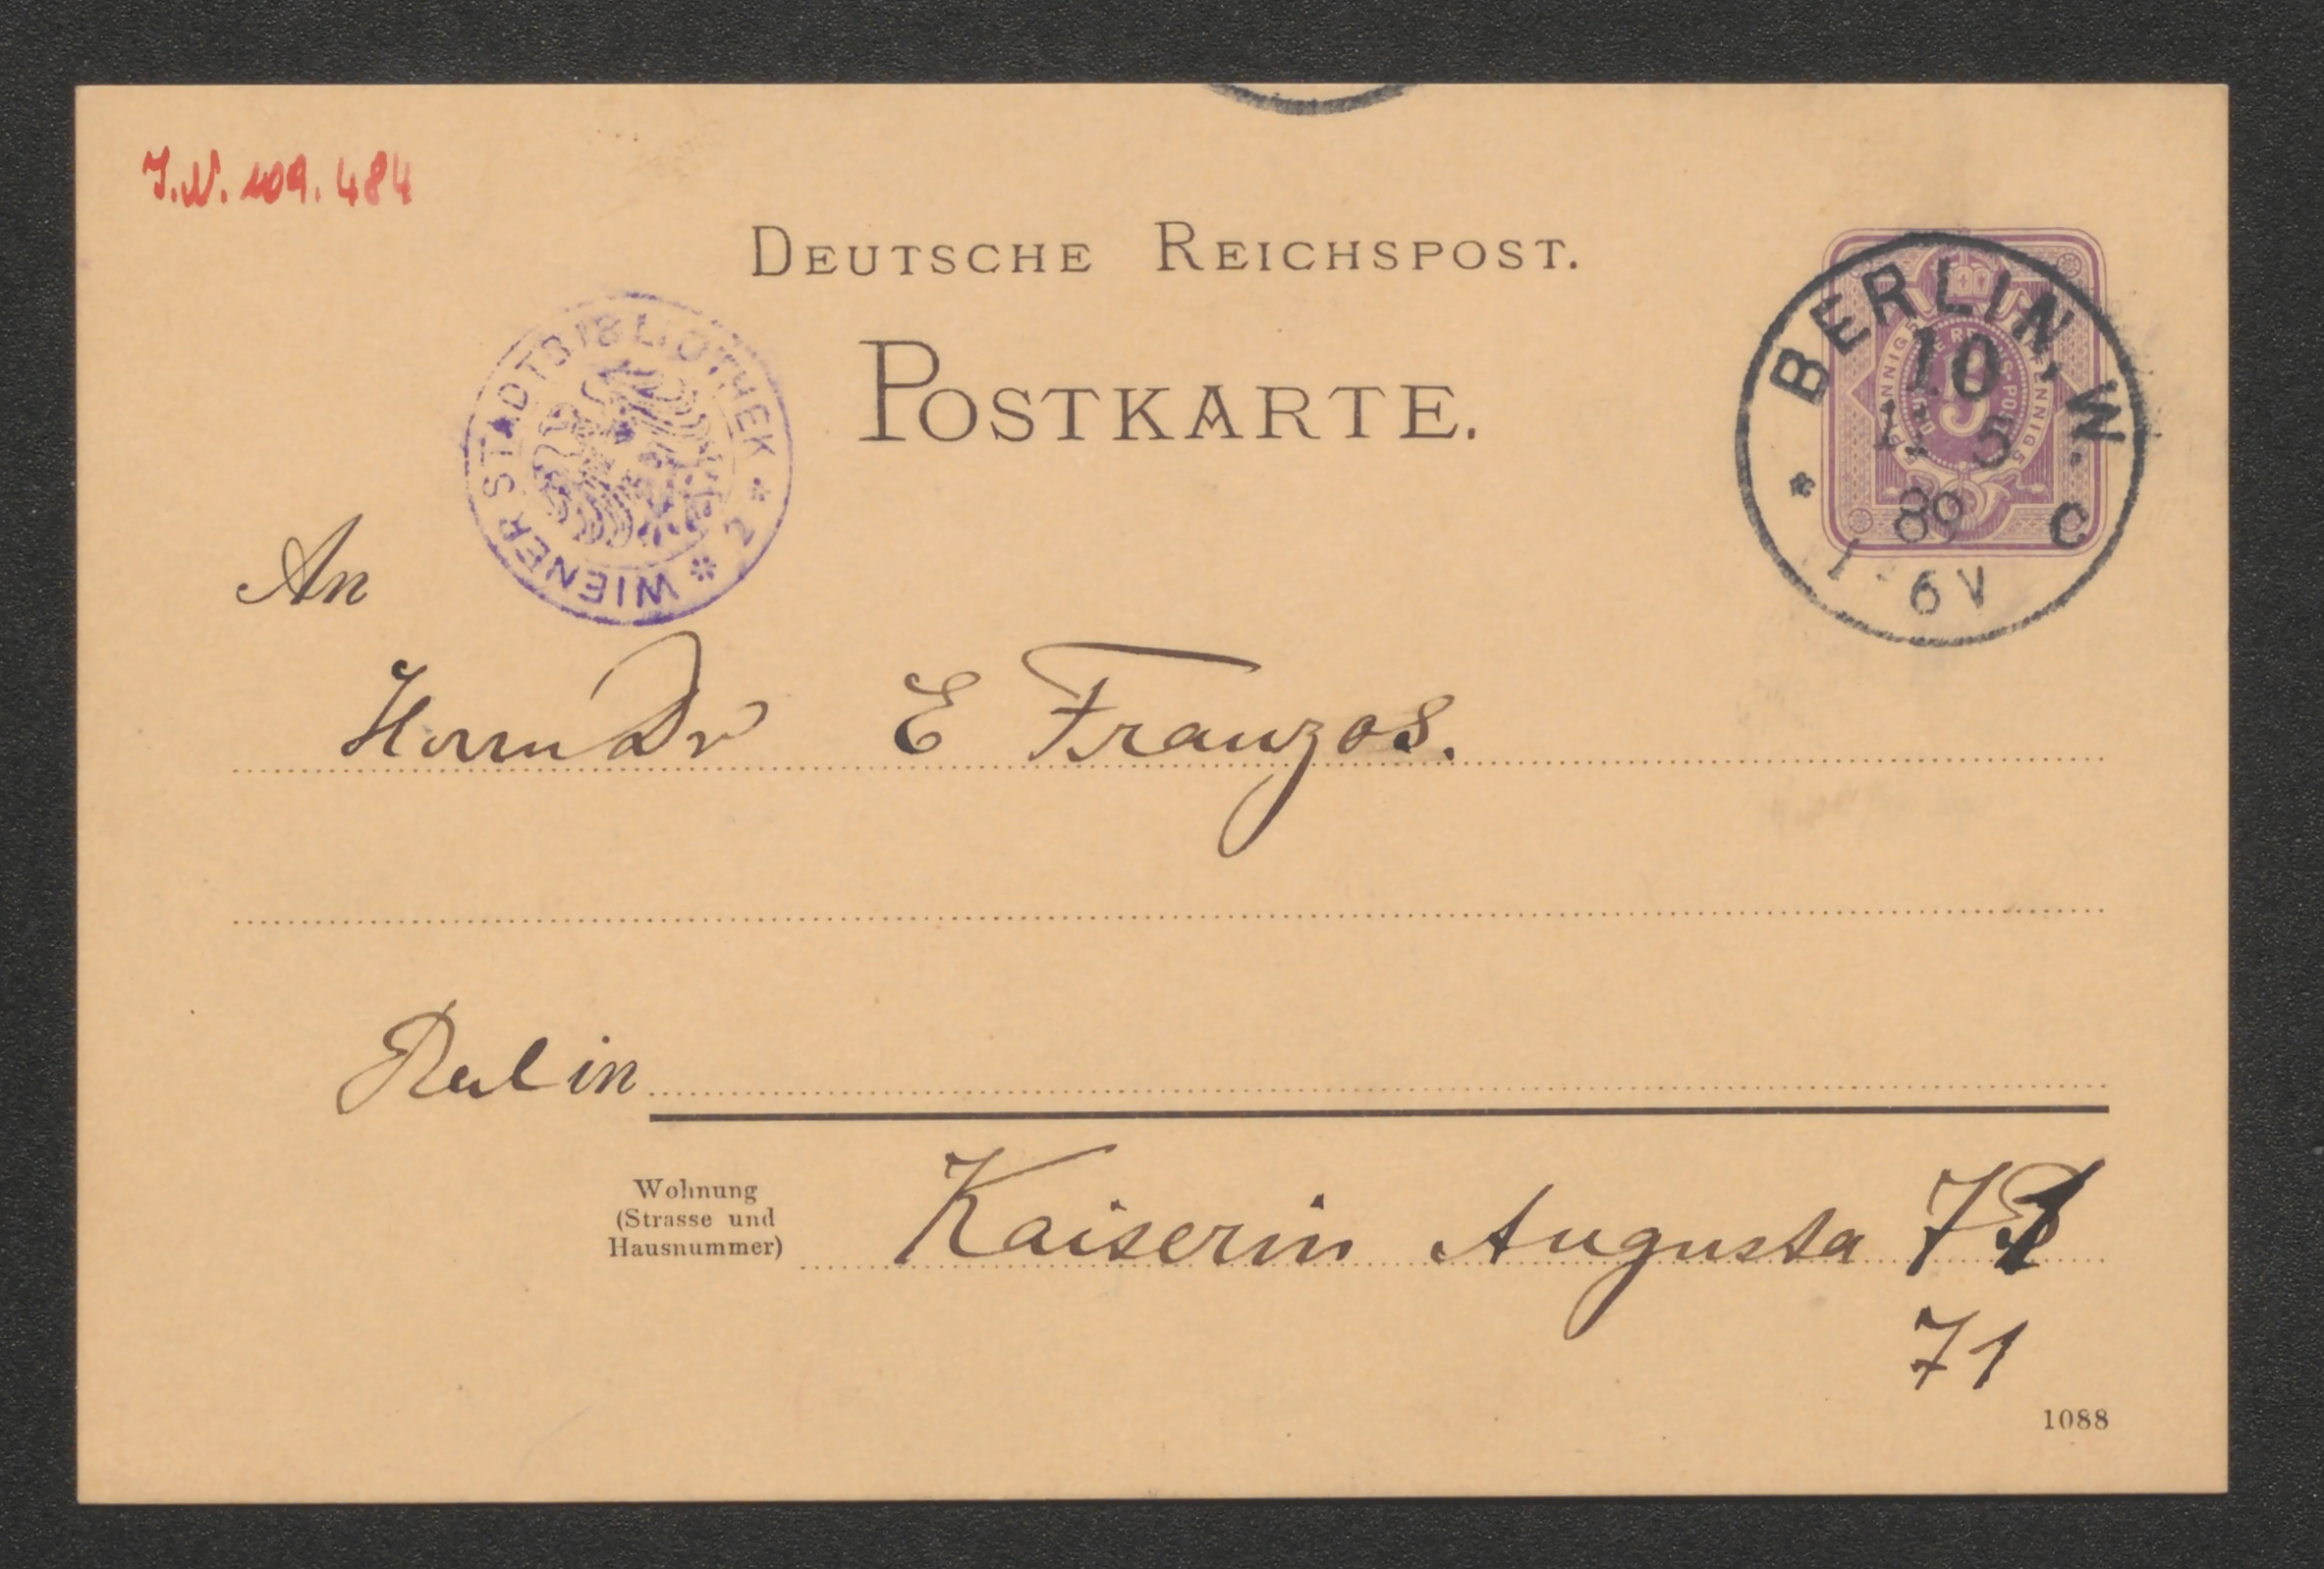 J.N. 109.484
DEUTSCHE REICHSPOST.
POSTKARTE.
WIENER STADTBIBLIOTHEK * 2 *
BERLIN. W.
10
5
89
6 V
C
An
Herrn Dr E Franzos.
Berlin
Wohnung
(Strasse und
Hausnummer)
Kaiserin Augusta 71
71
1088